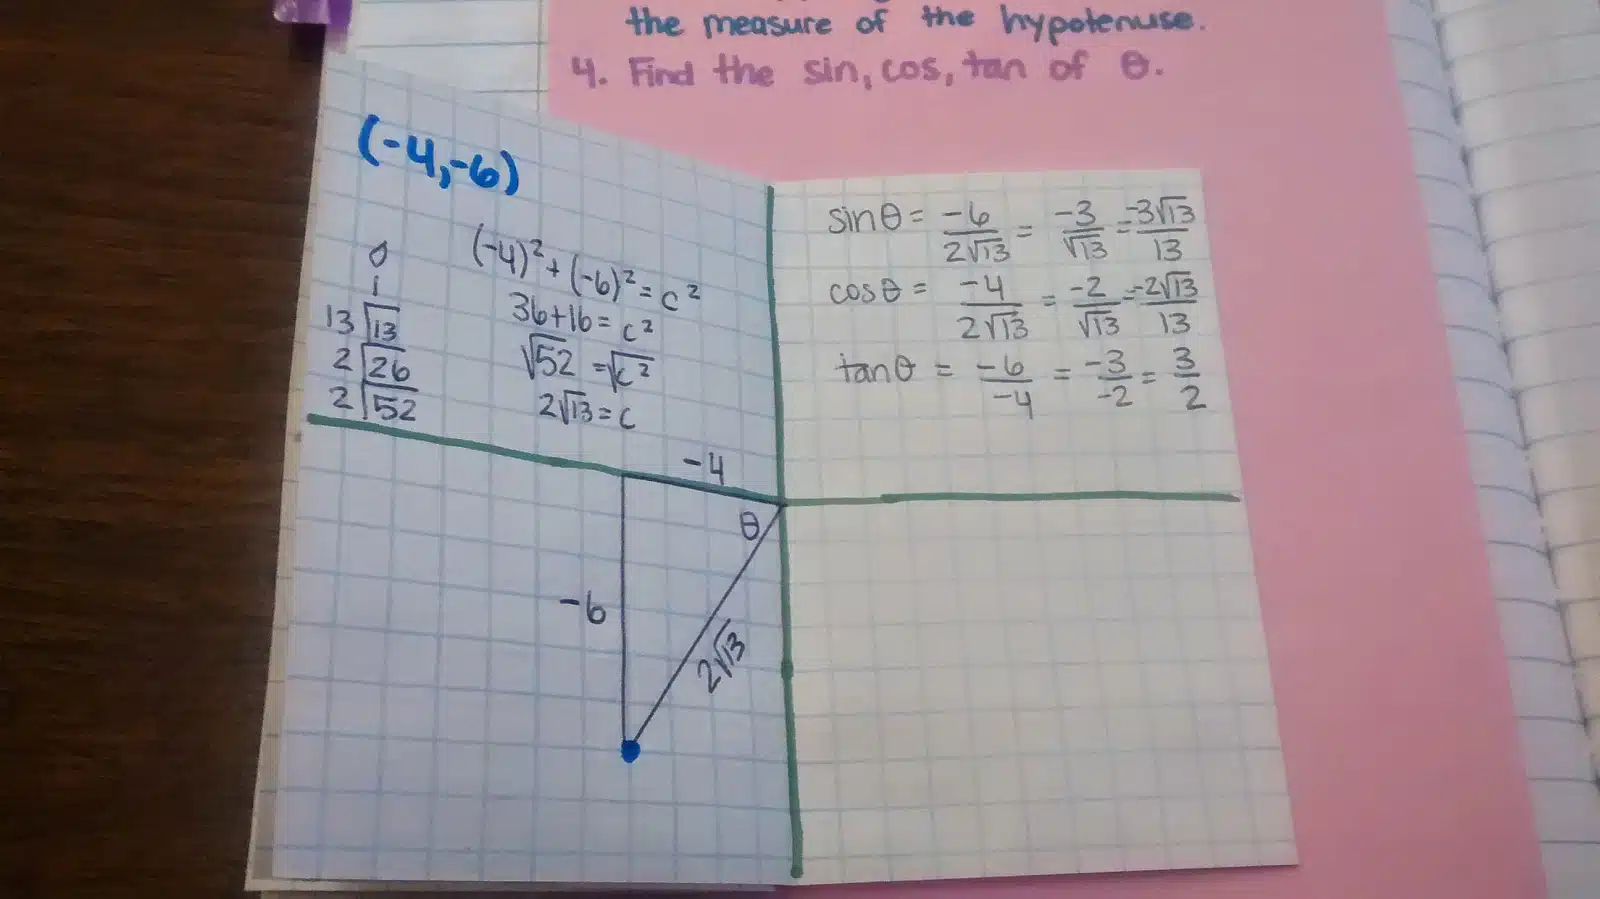 the measure of the hypotenuse.
4. Find the sin, cos, tan of θ.
(-4,-6)
(-4)²+(-6)²=c²
36+16=c²
√52=√c²
2√13=c
1
13|13
2|26
2|52
sinθ = -6/2√13 = -3/√13 = -3√13/13
cosθ = -4/2√13 = -2/√13 = -2√13/13
tanθ = -6/-4 = -3/-2 = 3/2
-4
θ
-6
2√13